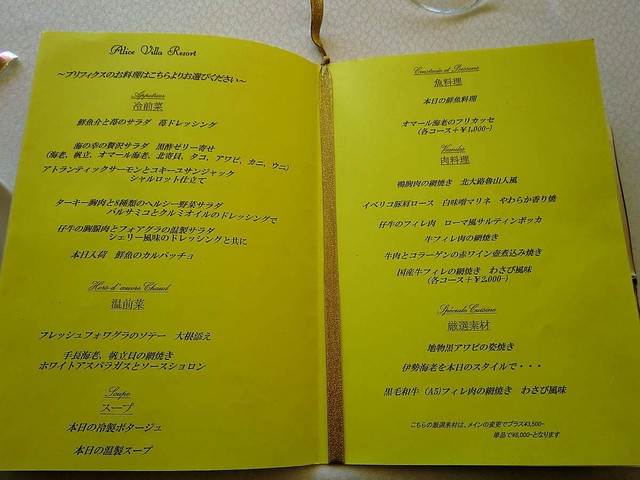 Alice Villa Resort
～プリフィクスのお料理はこちらよりお選びください～
Appetizer
冷前菜
鮮魚介と苺のサラダ 苺ドレッシング
海の幸の贅沢サラダ 黒酢ゼリー寄せ
(海老、帆立、オマール海老、北寄貝、タコ、アワビ、カニ、ウニ)
アトランティックサーモンとコキーユサンジャック
シャルロット仕立て
ターキー胸肉と8種類のヘルシー野菜サラダ
バルサミコとクルミオイルのドレッシングで
仔牛の胸腺肉とフォアグラの温製サラダ
シェリー風味のドレッシングと共に
本日入荷 鮮魚のカルパッチョ
Hors-d'oeuvre Chaud
温前菜
フレッシュフォワグラのソテー 大根添え
手長海老、帆立貝の網焼き
ホワイトアスパラガスとソースショロン
Soupe
スープ
本日の冷製ポタージュ
本日の温製スープ
Crustacés et Poissons
魚料理
本日の鮮魚料理
オマール海老のフリカッセ
(各コース+￥1,000-)
Viandes
肉料理
鴨胸肉の網焼き 北大路魯山人風
イベリコ豚肩ロース 白味噌マリネ やわらか香り焼
仔牛のフィレ肉 ローマ風サルティンボッカ
牛フィレ肉の網焼き
牛肉とコラーゲンの赤ワイン壺煮込み焼き
国産牛フィレの網焼き わさび風味
(各コース+￥2,000-)
Spéciale Cuisine
厳選素材
地物黒アワビの姿焼き
伊勢海老を本日のスタイルで・・・
黒毛和牛 (A5)フィレ肉の網焼き わさび風味
こちらの厳選素材は、メインの変更でプラス¥3,500-
単品で¥6,000-となります